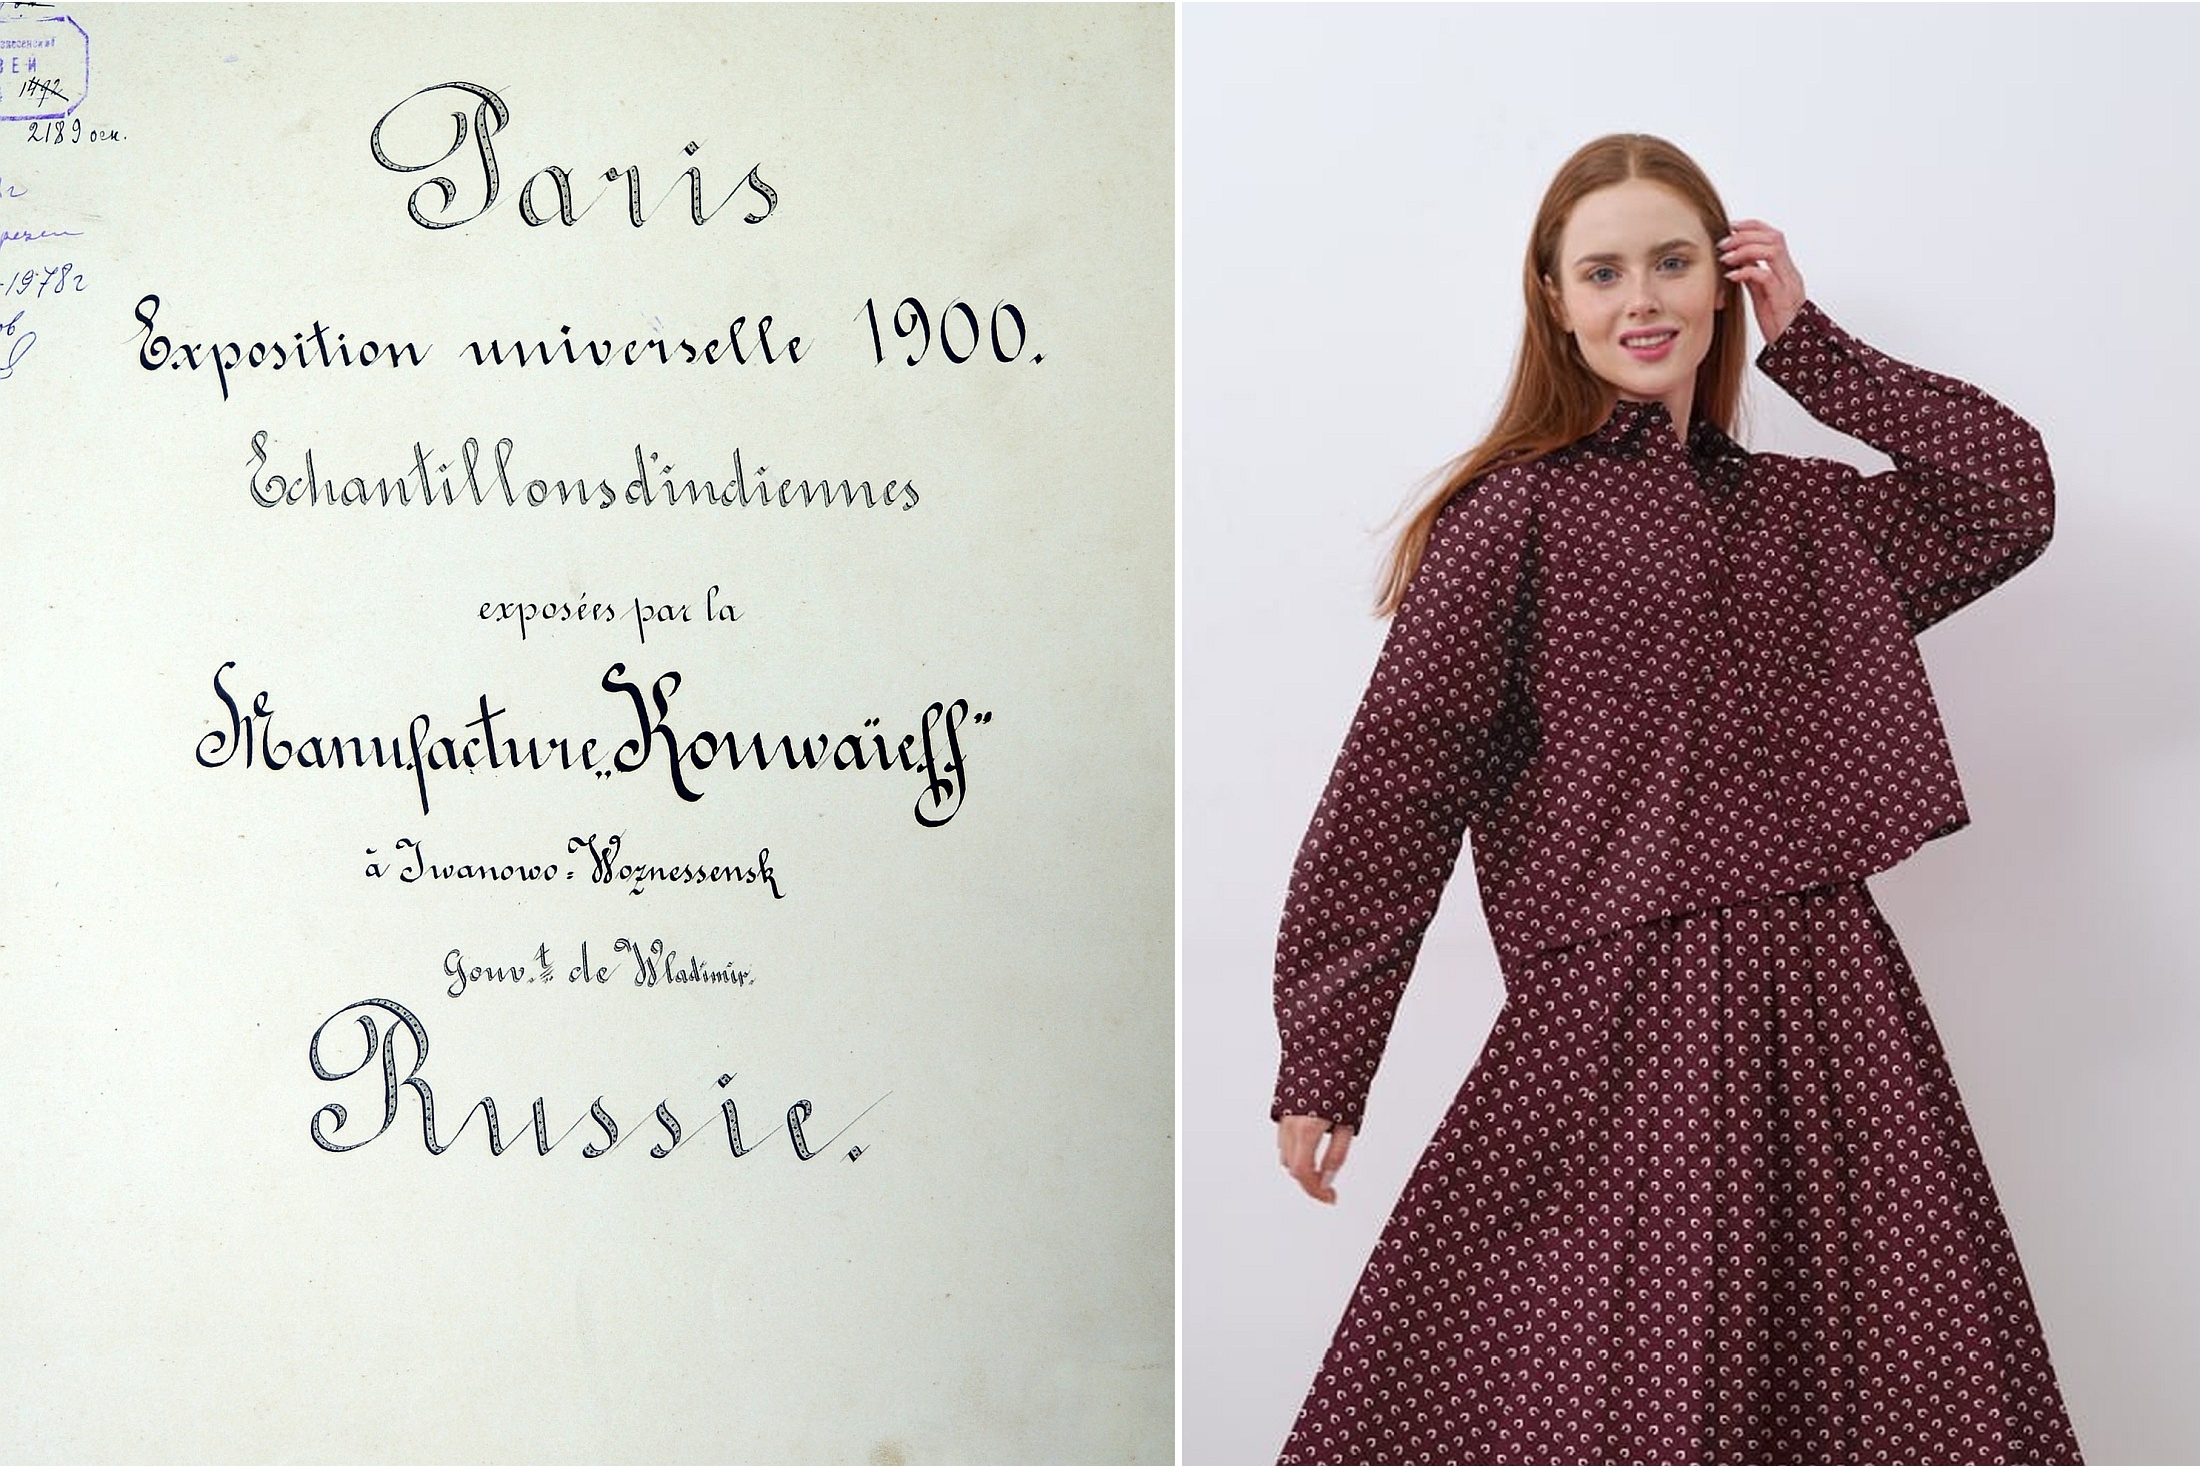 ЗЕЙ
1492
2189 осн.
-1978г
Paris
Exposition universelle 1900.
Echantillons d'indiennes
exposées par la
Manufacture „Konwaïeff"
à Iwanowo=Woznessensk
Gouv.t de Wladimir.
Russie.